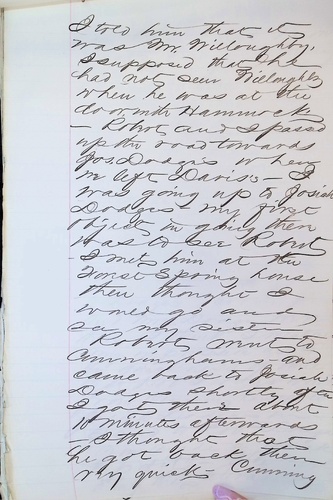 I told him that it
was Mr. Willoughby,
I supposed that he
had not seen Willoughby
when he was at the
door with Hammock
- Robert and I passed
up the road towards
Jos Dodges when
we left Davis's - I
was going up to Josiah
Dodges my first
object in going then
was to see Robert
- I met him at the
Forest Spring house
then thought I
would go and
see my sister
Robert went to
Cunninghams - and
came back to Josiah
Dodges shortly after
I got there about
10 minutes afterwards
- I thought that
he got back there
very quick - Cunning